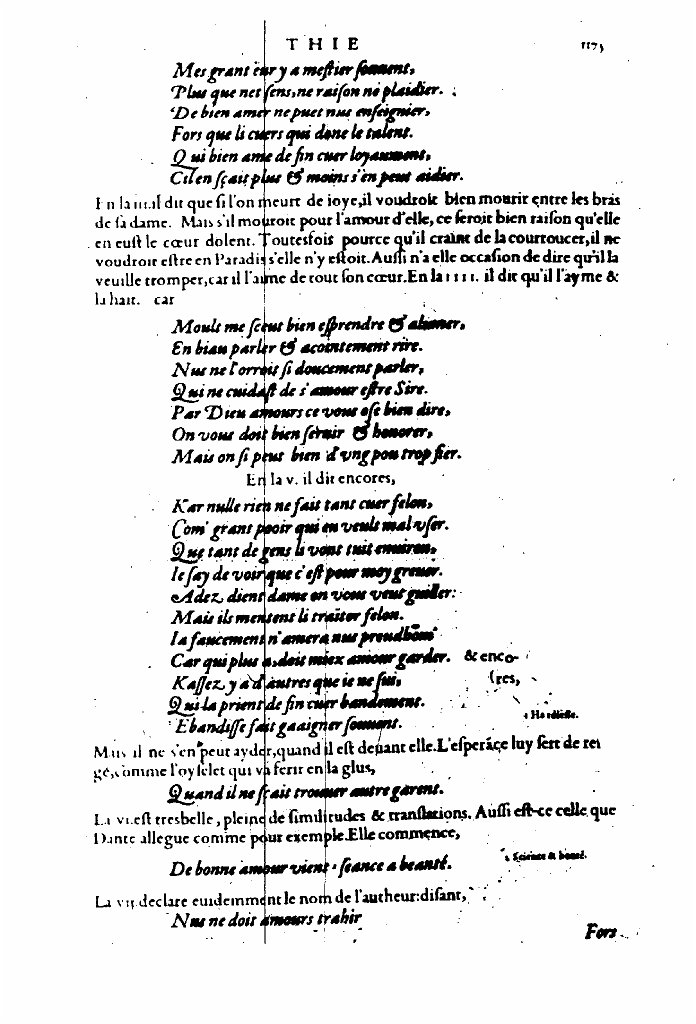 THIE 1173
Mes grant eur y a mestier souuent,
Plus que net sens, ne raison ne plaidier.
De bien amer ne puet nus enseignier,
Fors que li cuers qui done le talent.
Qui bien ame de fin cuer loyaument,
Cil en sçait plus & moins s'en peut aidier.
En la III. il dit que si l'on meurt de ioye, il voudroit bien mourir entre les bras
de sa dame. Mais s'il mouroit pour l'amour d'elle, ce seroit bien raison qu'elle
en eust le cœur dolent. Toutesfois pource qu'il craint de la courroucer, il ne
voudroit estre en Paradis s'elle n'y estoit. Aussi n'a elle occasion de dire qu'il la
veuille tromper, car il l'aime de tout son cœur. En la IIII. il dit qu'il l'ayme &
la hait. car
Moult me sceut bien esprendre & alumer,
En biau parler & acointement rire.
Nus ne l'orroit si doucement parler,
Qui ne cuidast de s'amour estre Sire.
Par Dieu amours ce vous ose bien dire,
On vous doit bien seruir & honorer,
Mais on si peut bien d'vng pou trop fier.
En la v. il dit encores,
Kar nulle rien ne fait tant cuer felon,
Com' grant pooir qui en veult mal vser.
Que tant de gens li vont tuit enuiron,
Ie say de voir que c'est pour moy greuer.
Adez dient dame on vous veut guiller:
Mais ils mentent li traitor felon.
Ia faucement n'amera nus preudhōm
Car qui plus a, doit miex amour garder. & enco-
Kassez y a d'autres que ie ne sui, (res,
Qui la prient de fin cuer bandement.
Ebandisse fait gaaigner souuent. Hardiesse.
Mais il ne s'en peut ayder, quand il est deuant elle. L'esperāce luy sert de rei
ge, comme l'oyselet qui va ferir en la glus,
Quand il ne sçait trouuer autre garent.
La VI. est tresbelle, pleine de similitudes & translations. Aussi est-ce celle que
Dante allegue comme pour exemple. Elle commence,
De bonne amour vient seance a beauté. Science & bonté.
La VII. declare euidemment le nom de l'autheur: disant,
Nus ne doit amours trahir
Fors